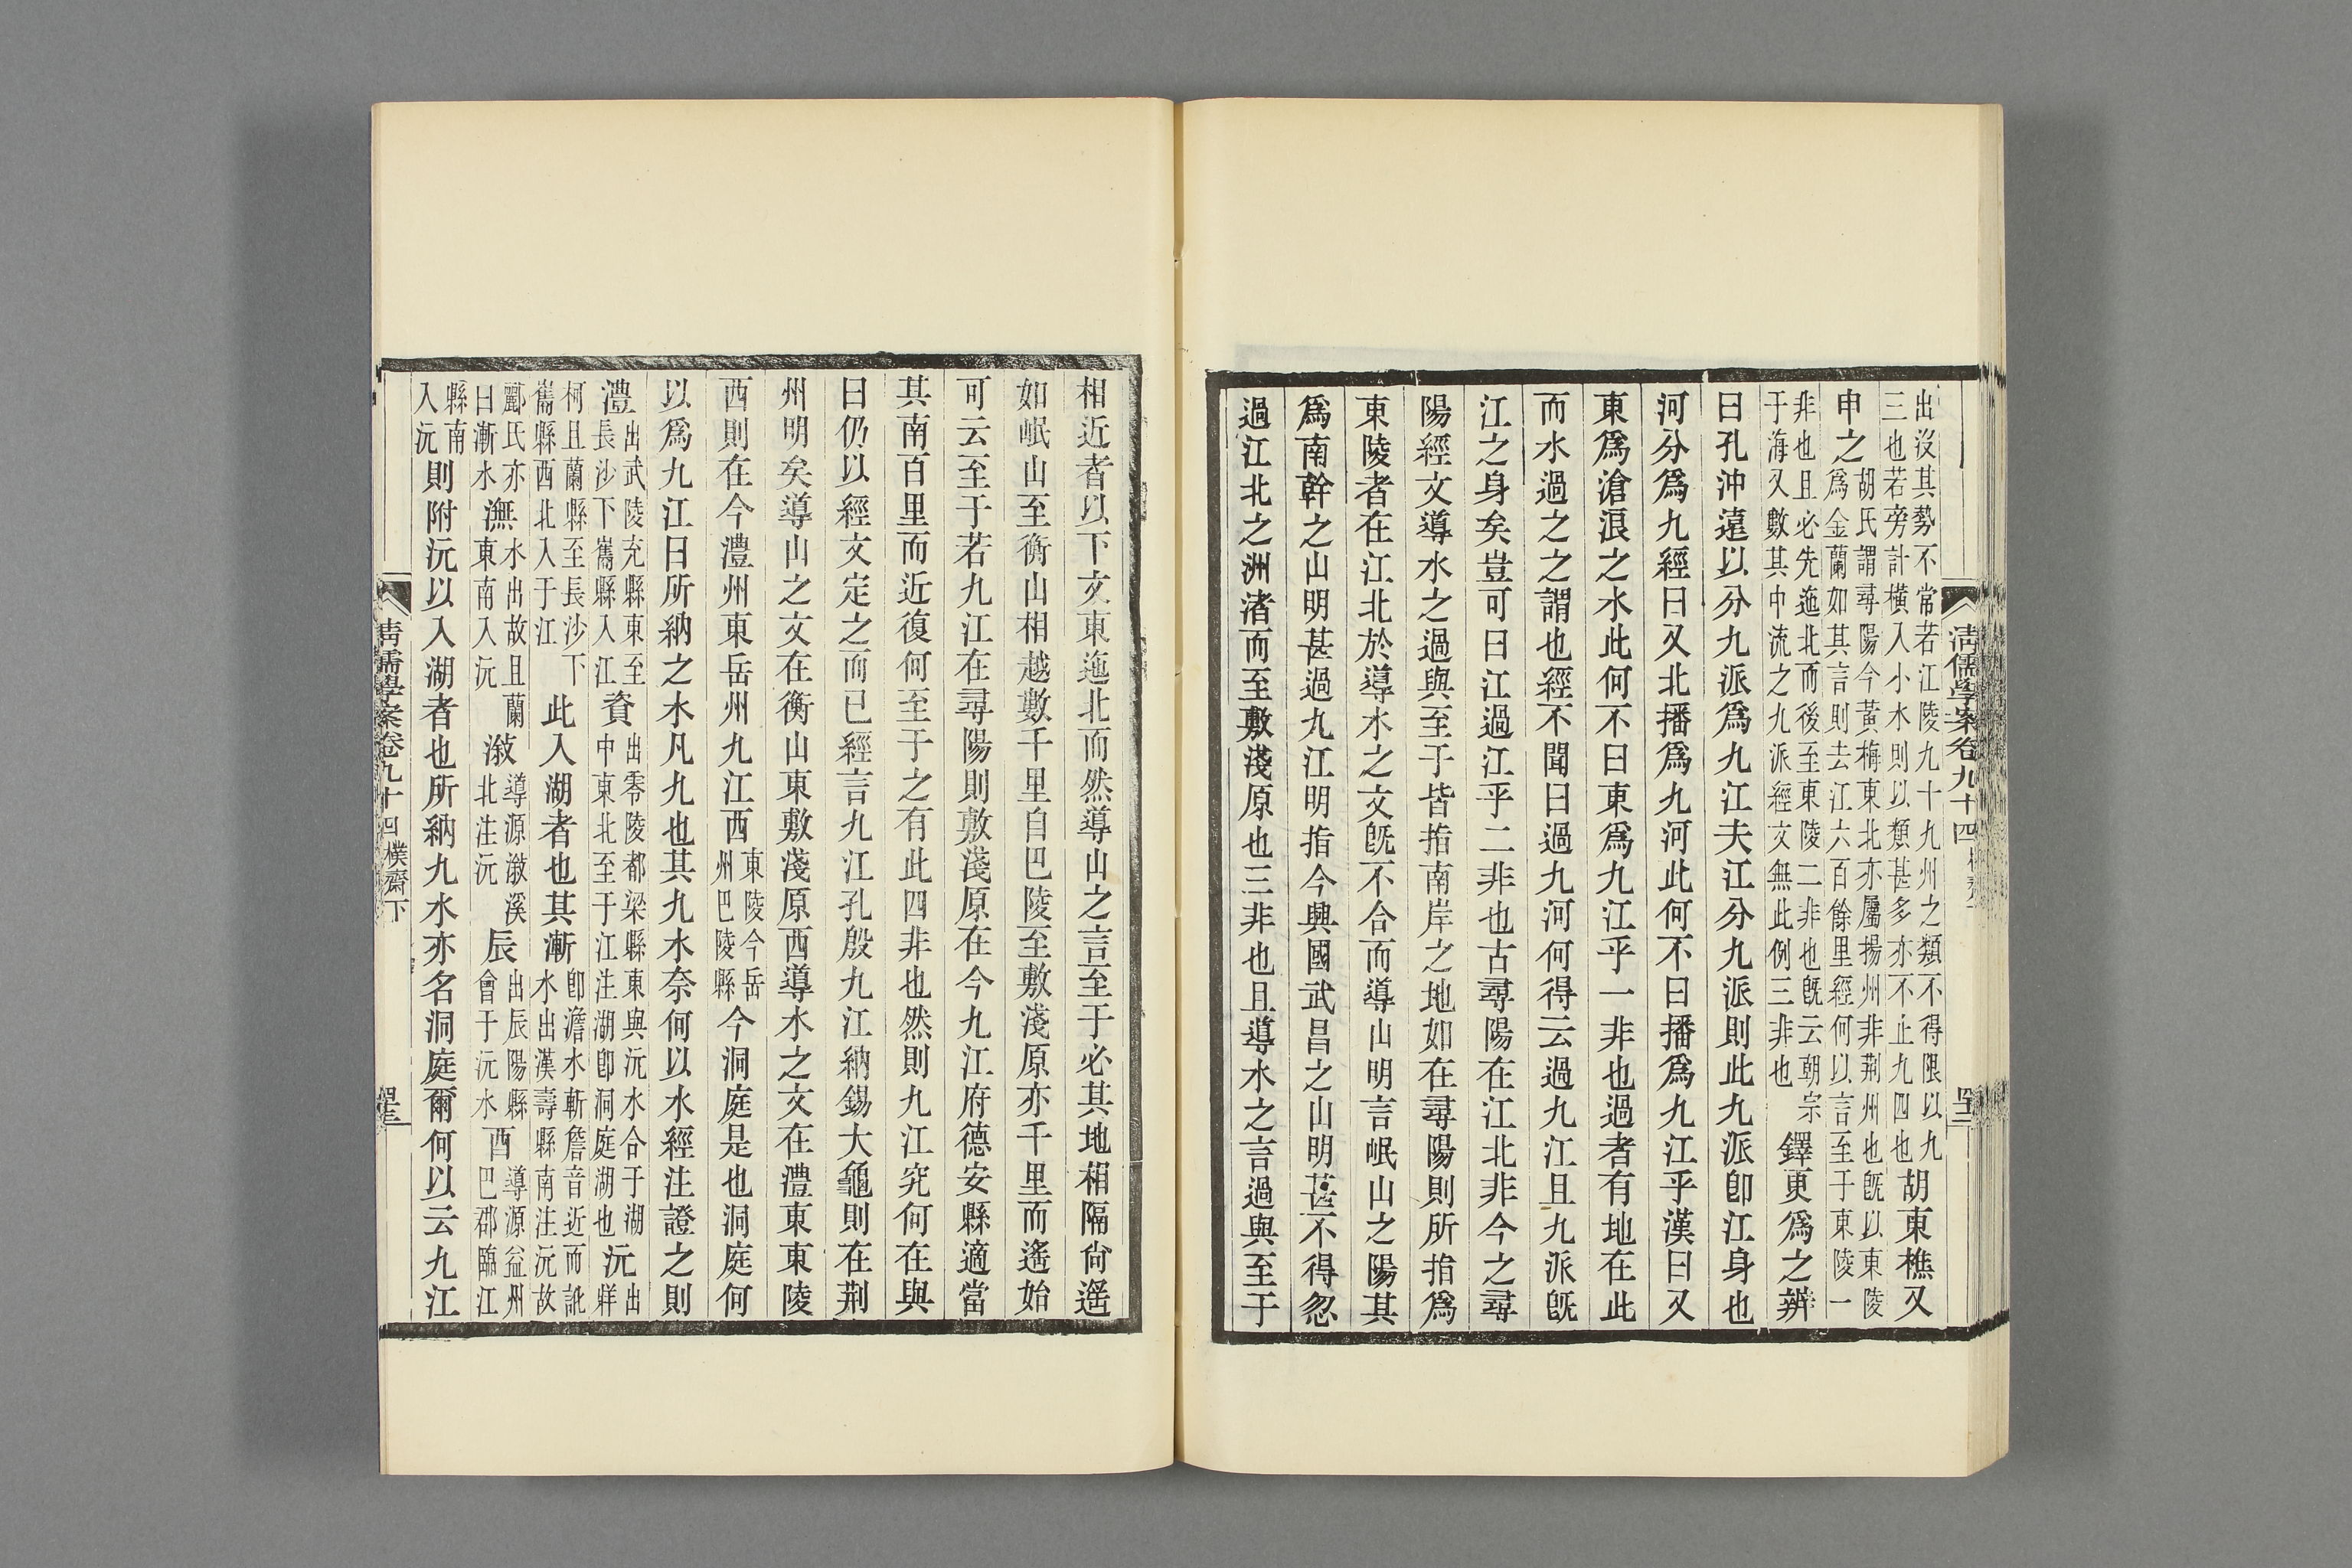 出沒其勢不常若江陵九十九州之類不得限以九
三也若旁計橫入小水則以類甚多亦不止九四也胡東樵又
申之胡氏謂尋陽今黃梅東北亦屬揚州非荆州也既以東陵
爲金蘭如其言則去江六百餘里經何以言至于東陵一
非也且必先迤北而後至東陵二非也既云朝宗
于海又數其中流之九派經文無此例三非也鐸更爲之辨
曰孔沖遠以分九派爲九江夫江分九派則此九派卽江身也
河分爲九經曰又北播爲九河此何不曰播爲九江乎漢曰又
東爲滄浪之水此何不曰東爲九江乎一非也過者有地在此
而水過之之謂也經不聞曰過九河何得云過九江且九派旣
江之身矣豈可曰江過江乎二非也古尋陽在江北非今之尋
陽經文導水之過與至于皆指南岸之地如在尋陽則所指爲
東陵者在江北於導水之文旣不合而導山明言岷山之陽其
爲南幹之山明甚過九江明指今興國武昌之山明甚不得忽
過江北之洲渚而至敷淺原也三非也且導水之言過與至于
清儒學案卷九十四
相近者以下文東迤北而然導山之言至于必其地相隔尙遙
如岷山至衡山相越數千里自巴陵至敷淺原亦千里而遙始
可云至于若九江在尋陽則敷淺原在今九江府德安縣適當
其南百里而近復何至于之有此四非也然則九江究何在與
曰仍以經文定之而已經言九江孔殷九江納錫大龜則在荆
州明矣導山之文在衡山東敷淺原西導水之文在澧東東陵
西則在今澧州東岳州九江西東陵今岳
州巴陵縣今洞庭是也洞庭何
以爲九江曰所納之水凡九也其九水奈何以水經注證之則
澧出武陵充縣東至
長沙下雋縣入江資出零陵都梁縣東與沅水合于湖
中東北至于江注湖卽洞庭湖也沅出牂
柯且蘭縣至長沙下
雋縣西北入于江此入湖者也其漸卽澹水漸詹音近而訛
水出漢壽縣南注沅故
酈氏亦
曰漸水潕水出故且蘭
東南入沅漵導源漵溪
北注沅辰出辰陽縣
會于沅水酉導源益州
巴郡臨江
縣南
入沅則附沅以入湖者也所納九水亦名洞庭爾何以云九江
清儒學案卷九十四樸齋下